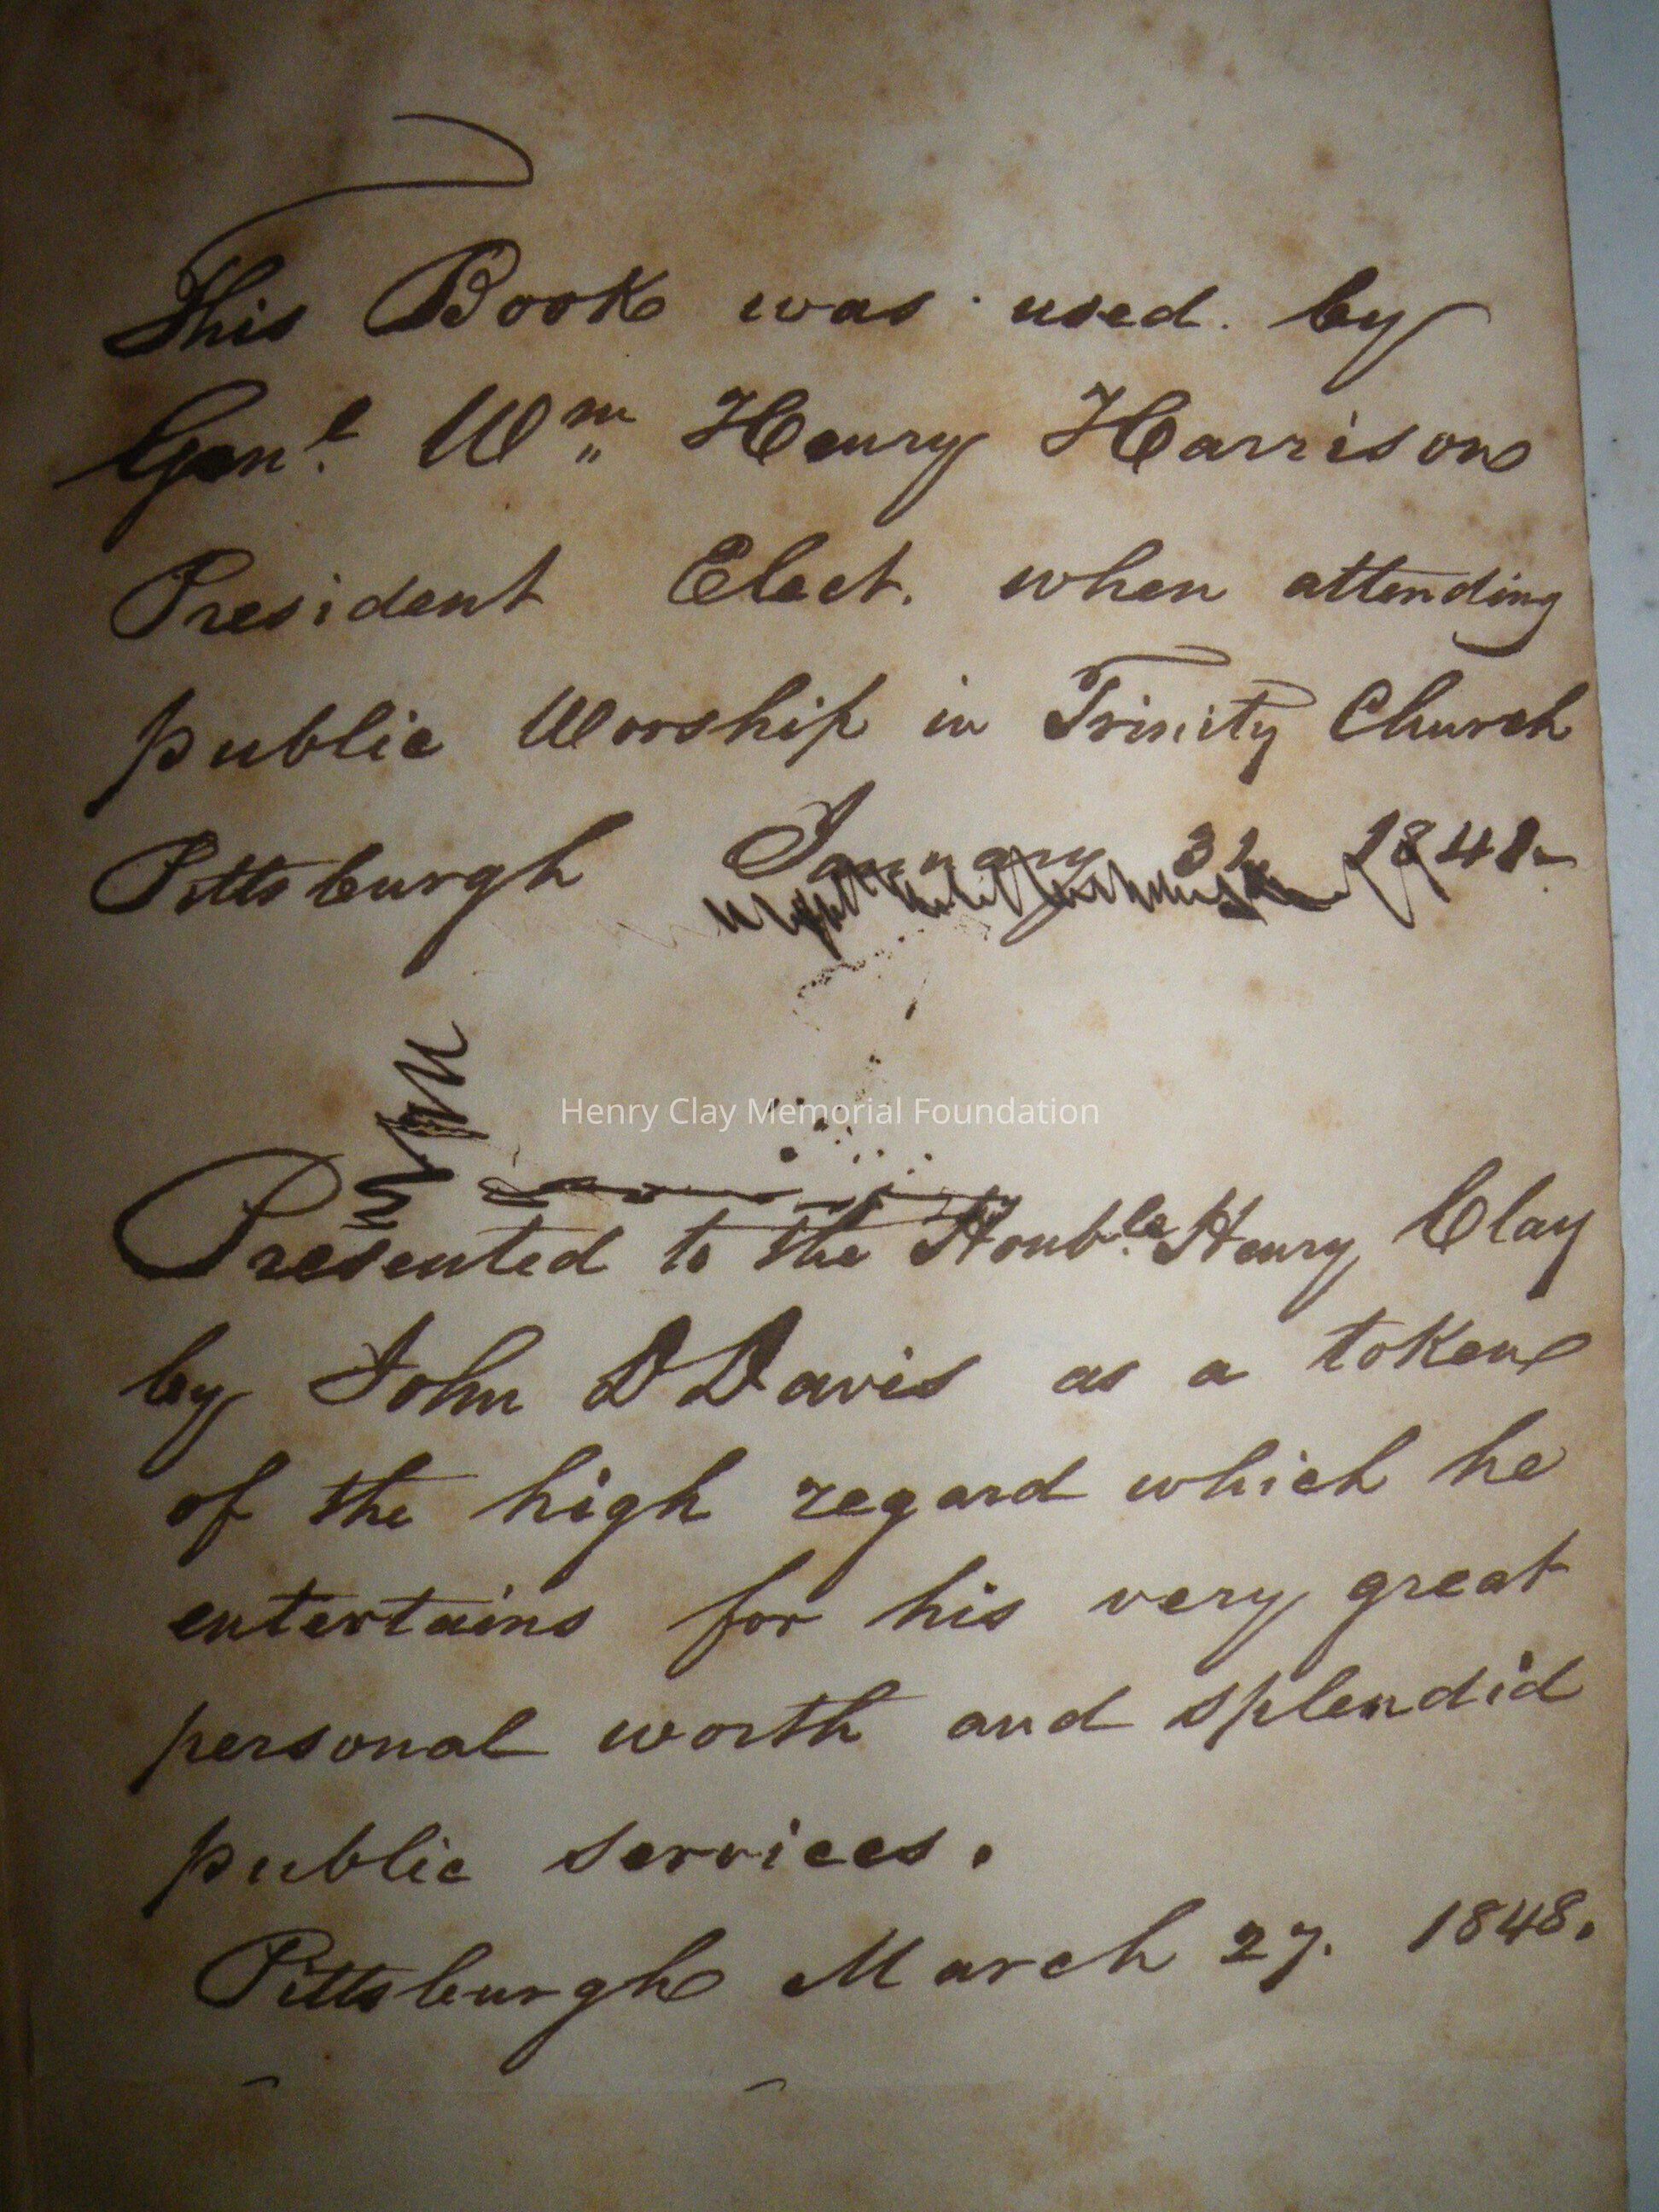 This Book was used by
Genl. Wm Henry Harrison
President Elect. when attending
public Worship in Trinity Church
Pittsburgh January 31 1841.
Henry Clay Memorial Foundation
Presented to the Honble. Henry Clay
by John D Davis as a token
of the high regard which he
entertains for his very great
personal worth and splendid
public services.
Pittsburgh March 27. 1848.